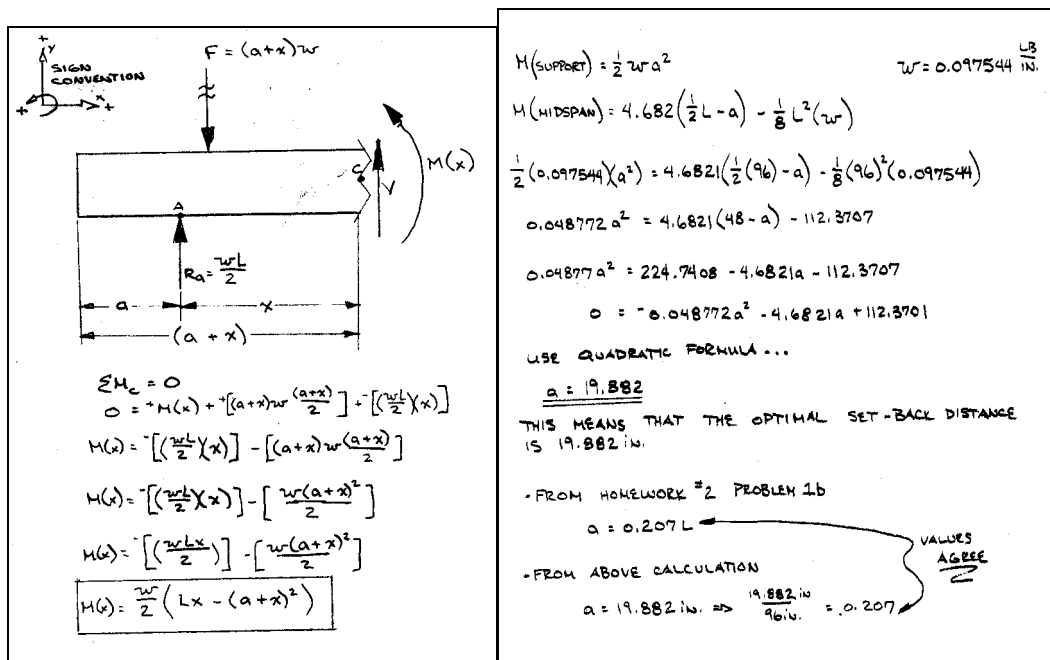 F = (a+x)w
+
y
SIGN
CONVENTION
x
+
+
M(x)
C
V
A
Ra = wL/2
a
x
(a + x)
ΣMc = 0
0 = ⁺M(x) + ⁺[(a+x)w (a+x)/2] + ⁻[(wL/2)(x)]
M(x) = ⁻[(wL/2)(x)] - [(a+x)w (a+x)/2]
M(x) = ⁻[(wL/2)(x)] - [w(a+x)²/2]
M(x) = ⁻[(wLx/2)] - [w(a+x)²/2]
M(x) = w/2 (Lx - (a+x)²)
M(SUPPORT) = 1/2 wa²
w = 0.097544 LB/IN.
M(MIDSPAN) = 4.682(1/2 L - a) - 1/8 L²(w)
1/2 (0.097544)(a²) = 4.6821(1/2 (96) - a) - 1/8 (96)²(0.097544)
0.048772a² = 4.6821(48 - a) - 112.3707
0.04877a² = 224.7408 - 4.6821a - 112.3707
0 = ⁻0.048772a² - 4.6821a + 112.3701
USE QUADRATIC FORMULA...
a = 19.882
THIS MEANS THAT THE OPTIMAL SET-BACK DISTANCE
IS 19.882 in.
·FROM HOMEWORK #2 PROBLEM 1b
a = 0.207L
VALUES
AGREE
·FROM ABOVE CALCULATION
a = 19.882 in. ⇒ 19.882 in/96 in. = 0.207